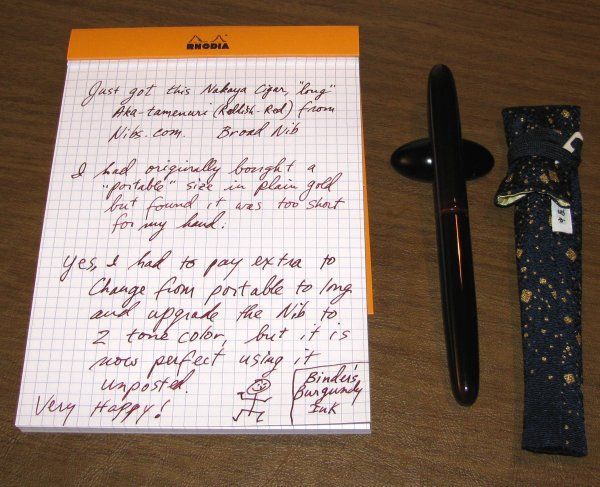 RHODIA
Just got this Nakaya Cigar, "long"
Aka-tamenuri (Reddish-Red) from
Nibs.com. Broad Nib
I had originally bought a
"portable" size in plain gold
but found it was too short
for my hand.
Yes, I had to pay extra to
Change from portable to long
and upgrade the Nib to
2 tone color, but it is
now perfect using it
unposted.
Very Happy!
Binder's
Burgundy
Ink